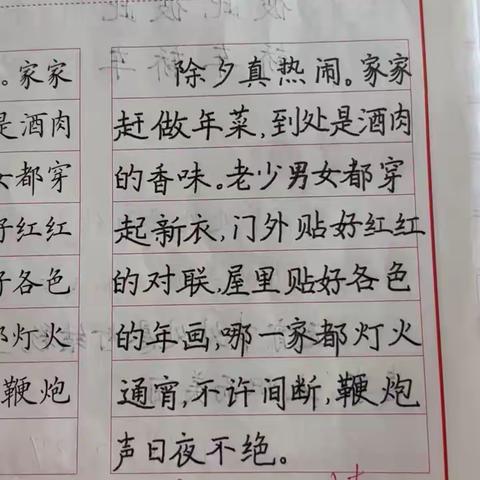 除夕真热闹。家家
赶做年菜,到处是酒肉
的香味。老少男女都穿
起新衣,门外贴好红红
的对联,屋里贴好各色
的年画,哪一家都灯火
通宵,不许间断,鞭炮
声日夜不绝。
。家家
是酒肉
女都穿
好红红
好各色
都灯火
鞭炮